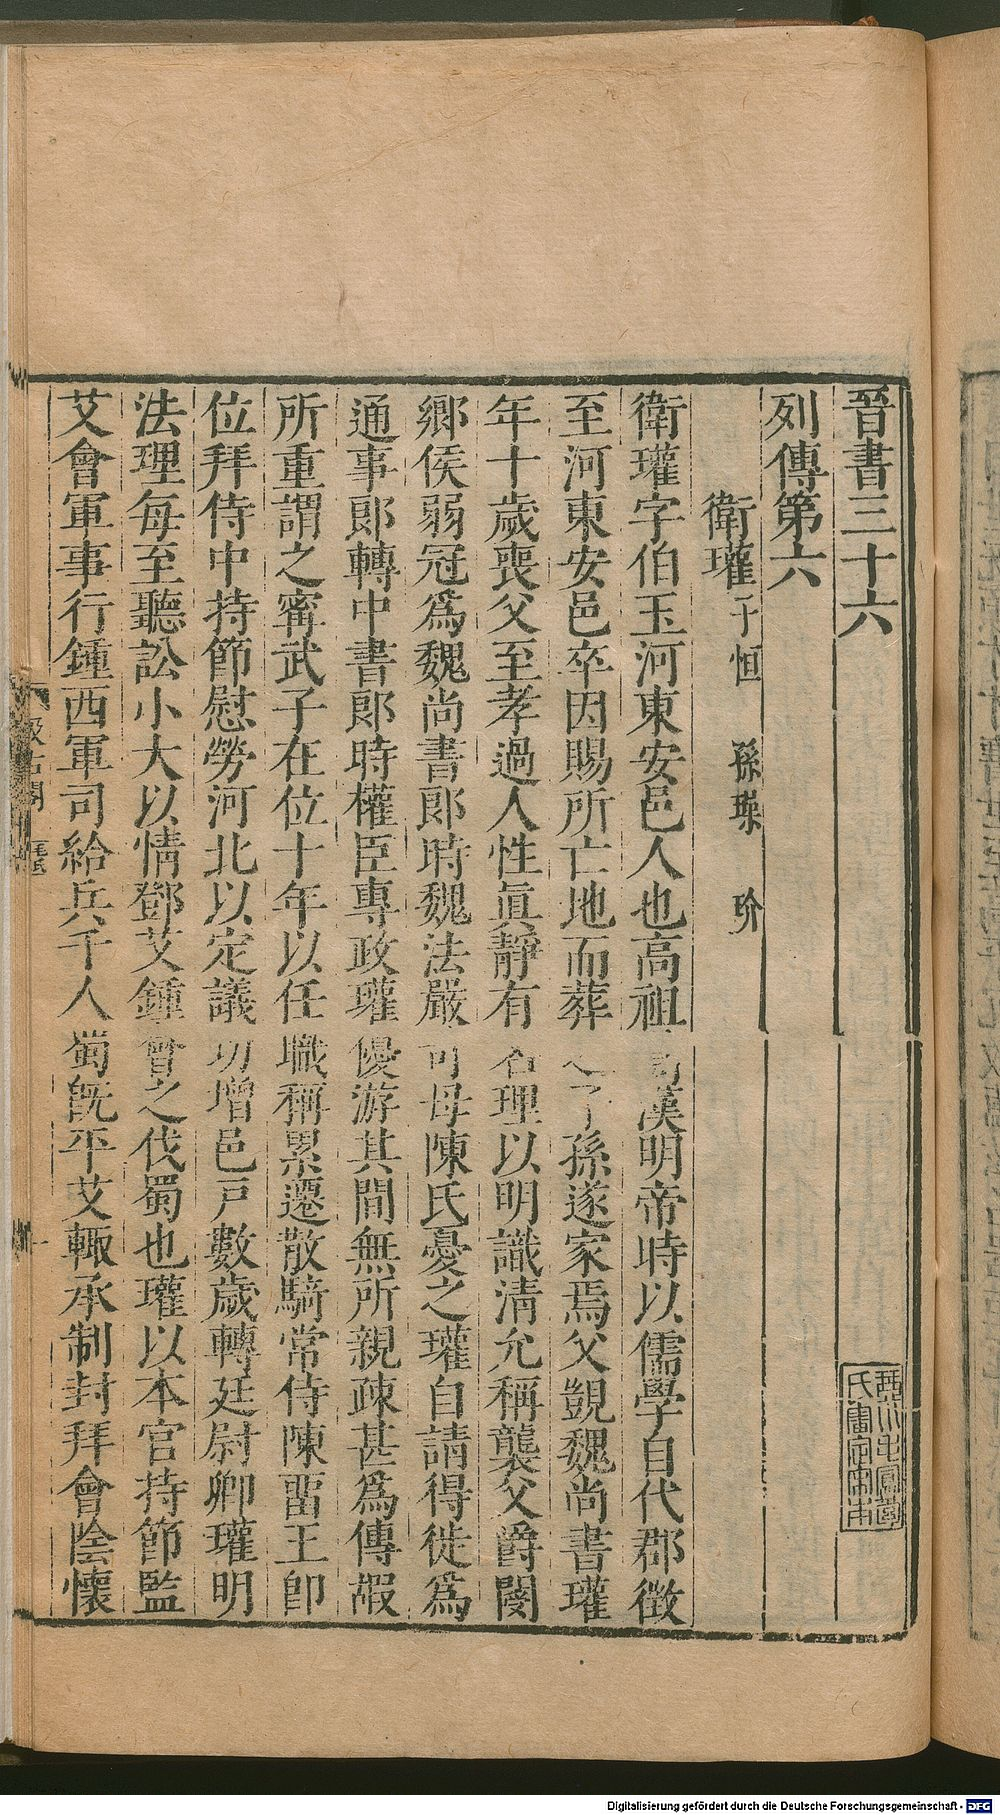 晉書三十六
列傳第六
衛瓘 子恒 孫璪 玠
衛瓘字伯玉河東安邑人也高祖暠漢明帝時以儒學自代郡徵
至河東安邑卒因賜所亡地而葬之子孫遂家焉父覬魏尚書瓘
年十歲喪父至孝過人性眞靜有名理以明識清允稱襲父爵閿
鄉侯弱冠爲魏尚書郎時魏法嚴苛母陳氏憂之瓘自請得徙爲
通事郎轉中書郎時權臣專政瓘優游其間無所親疎甚爲傅嘏
所重謂之甯武子在位十年以任職稱累遷散騎常侍陳畱王卽
位拜侍中持節慰勞河北以定議功增邑戸數歲轉廷尉卿瓘明
法理每至聽訟小大以情鄧艾鍾會之伐蜀也瓘以本官持節監
艾會軍事行鍾西軍司給兵千人蜀旣平艾輒承制封拜會陰懷
汲古閣
一
Digitalisierung gefördert durch die Deutsche Forschungsgemeinschaft - DFG